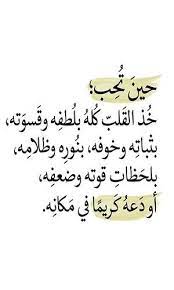 حينَ تُحِب؛
خُذ القَلبّ كُلهُ بلُطفِه وقَسوَته،
بثباتِه وخوفه، بنُورِه وظلامِه،
بلحَظاتِ قوته وضعفِه،
أو دَعهُ كَريمًا في مَكانِه.